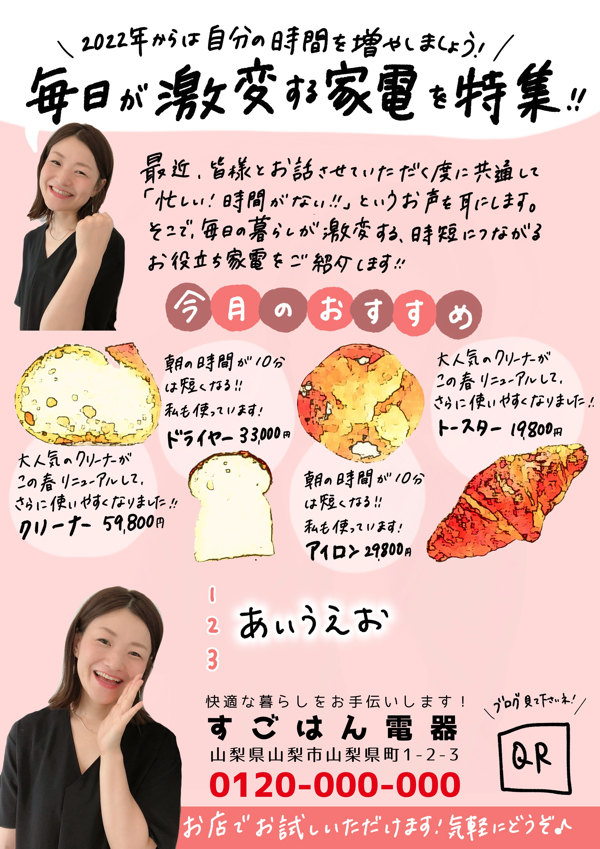 2022年からは自分の時間を増やしましょう!
毎日が激変する家電を特集!!
最近、皆様とお話させていただく度に共通して
「忙しい!時間がない!!」というお声を耳にします。
そこで、毎日の暮らしが激変する、時短につながる
お役立ち家電をご紹介します!!
今月のおすすめ
大人気のクリーナーが
この春リニューアルして、
さらに使いやすくなりました!!
クリーナー 59,800円
朝の時間が10分
は短くなる!!
私も使っています!
ドライヤー 33,000円
朝の時間が10分
は短くなる!!
私も使っています!
アイロン 29,800円
大人気のクリーナーが
この春リニューアルして、
さらに使いやすくなりました!!
トースター 19,800円
1
2
3
あいうえお
快適な暮らしをお手伝いします!
すごはん電器
山梨県山梨市山梨県町1-2-3
0120-000-000
ブログ見て下さいネ!
QR
お店でお試しいただけます!気軽にどうぞ♪